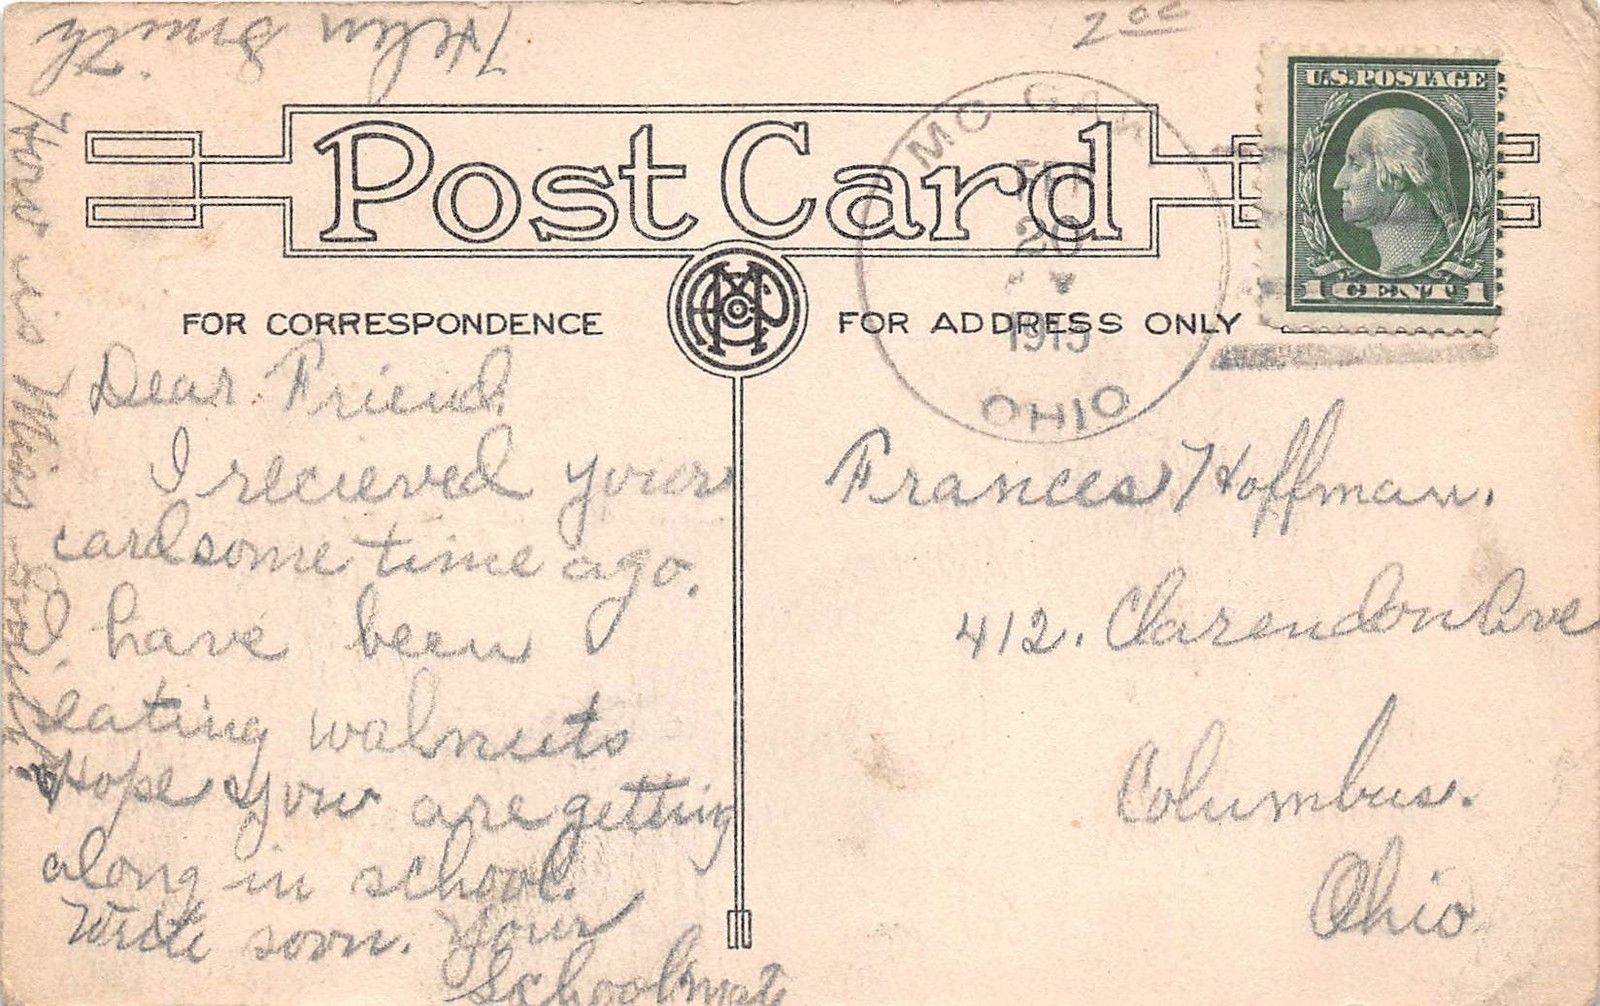 2 00
U.S. POSTAGE
1 CENT 1
MC
20
1915
OHIO
Post Card
FOR CORRESPONDENCE
FOR ADDRESS ONLY
Dear Friend.
I recieved your
card some time ago.
I have been
eating walnuts
Hope you are getting
along in school.
Write soon. Your
Schoolmate
Helen Smith
How is Miss
Frances Hoffman.
412. Clarendon Ave
Columbus.
Ohio